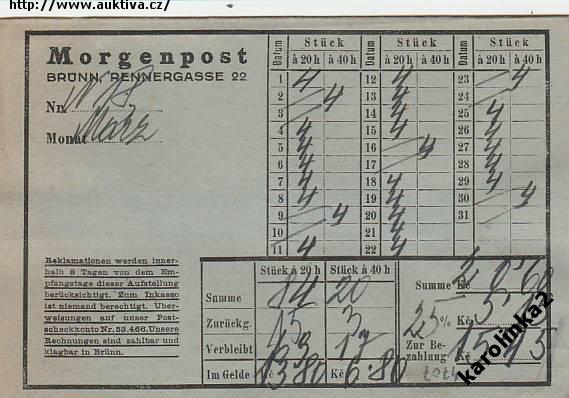 http://www.auktiva.cz/
Morgenpost
BRÜNN, RENNERGASSE 22
Nr.
Monat März
Datum Stück à 20 h à 40 h Datum Stück à 20 h à 40 h Datum Stück à 20 h à 40 h
1 4 12 4 23 4
2 4 13 4 24
3 14 4 25 4
4 4 15 4 26 4
5 4 16 4 27 4
6 4 17 28 4
7 4 18 4 29 4
8 4 19 4 30 4
9 4 20 4 31
10 21 4
11 4 22 4
Reklamationen werden inner-
halb 8 Tagen von dem Em-
pfangstage dieser Aufstellung
berücksichtigt. Zum Inkasso
ist niemand berechtigt. Über-
weisungen auf unser Post-
scheckkonto Nr. 53.466. Unsere
Rechnungen sind zahlbar und
klagbar in Brünn.
Stück à 20 h Stück à 40 h
Summe 84 20
Zurückg. 15 3
Verbleibt 17
Im Gelde Kč 13 80 Kč 6.80
Summe Kč 20.60
25% Kč 5.15
Zur Be-
zahlung Kč 15.45
karolinka2